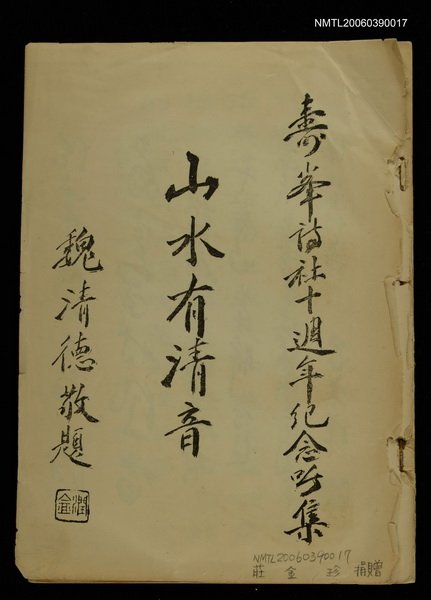 NMTL20060390017
壽峯詩社十週年紀念吟集
山水有清音
魏清德敬題
潤金
NMTL20060390017
莊金珍捐贈